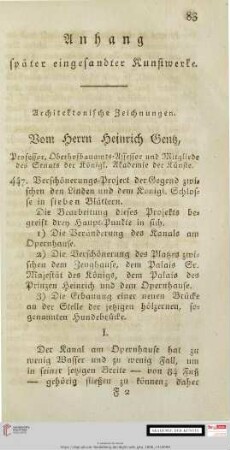 83
Anhang
später eingesandter Kunstwerke.
Architektonische Zeichnungen.
Vom Herrn Heinrich Gentz,
Professor, Oberhofbauamts-Assessor und Mitgliede
des Senats der Königl. Akademie der Künste.
447. Verschönerungs-Project der Gegend zwi-
schen den Linden und dem Königl. Schlos-
se in sieben Blättern.
Die Bearbeitung dieses Projekts be-
greift drey Haupt-Punkte in sich.
1) Die Veränderung des Kanals am
Opernhause.
2) Die Verschönerung des Platzes zwi-
schen dem Zeughause, dem Palais Sr.
Majestät des Königs, dem Palais des
Prinzen Heinrich und dem Opernhause.
3) Die Erbauung einer neuen Brücke
an der Stelle der jetzigen hölzernen, so-
genannten Hundebrücke.
I.
Der Kanal am Opernhause hat zu
wenig Wasser und zu wenig Fall, um
in seiner jetzigen Breite — von 84 Fuß
— gehörig fließen zu können; daher
F 2